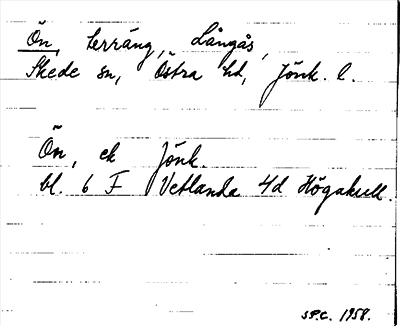 Ön, terräng, Långås,
Skede sn, Östra hd, Jönk. l.
Ön, ek Jönk.
bl. 6 F Vetlanda 4d Högakull.
SP.C. 1958.